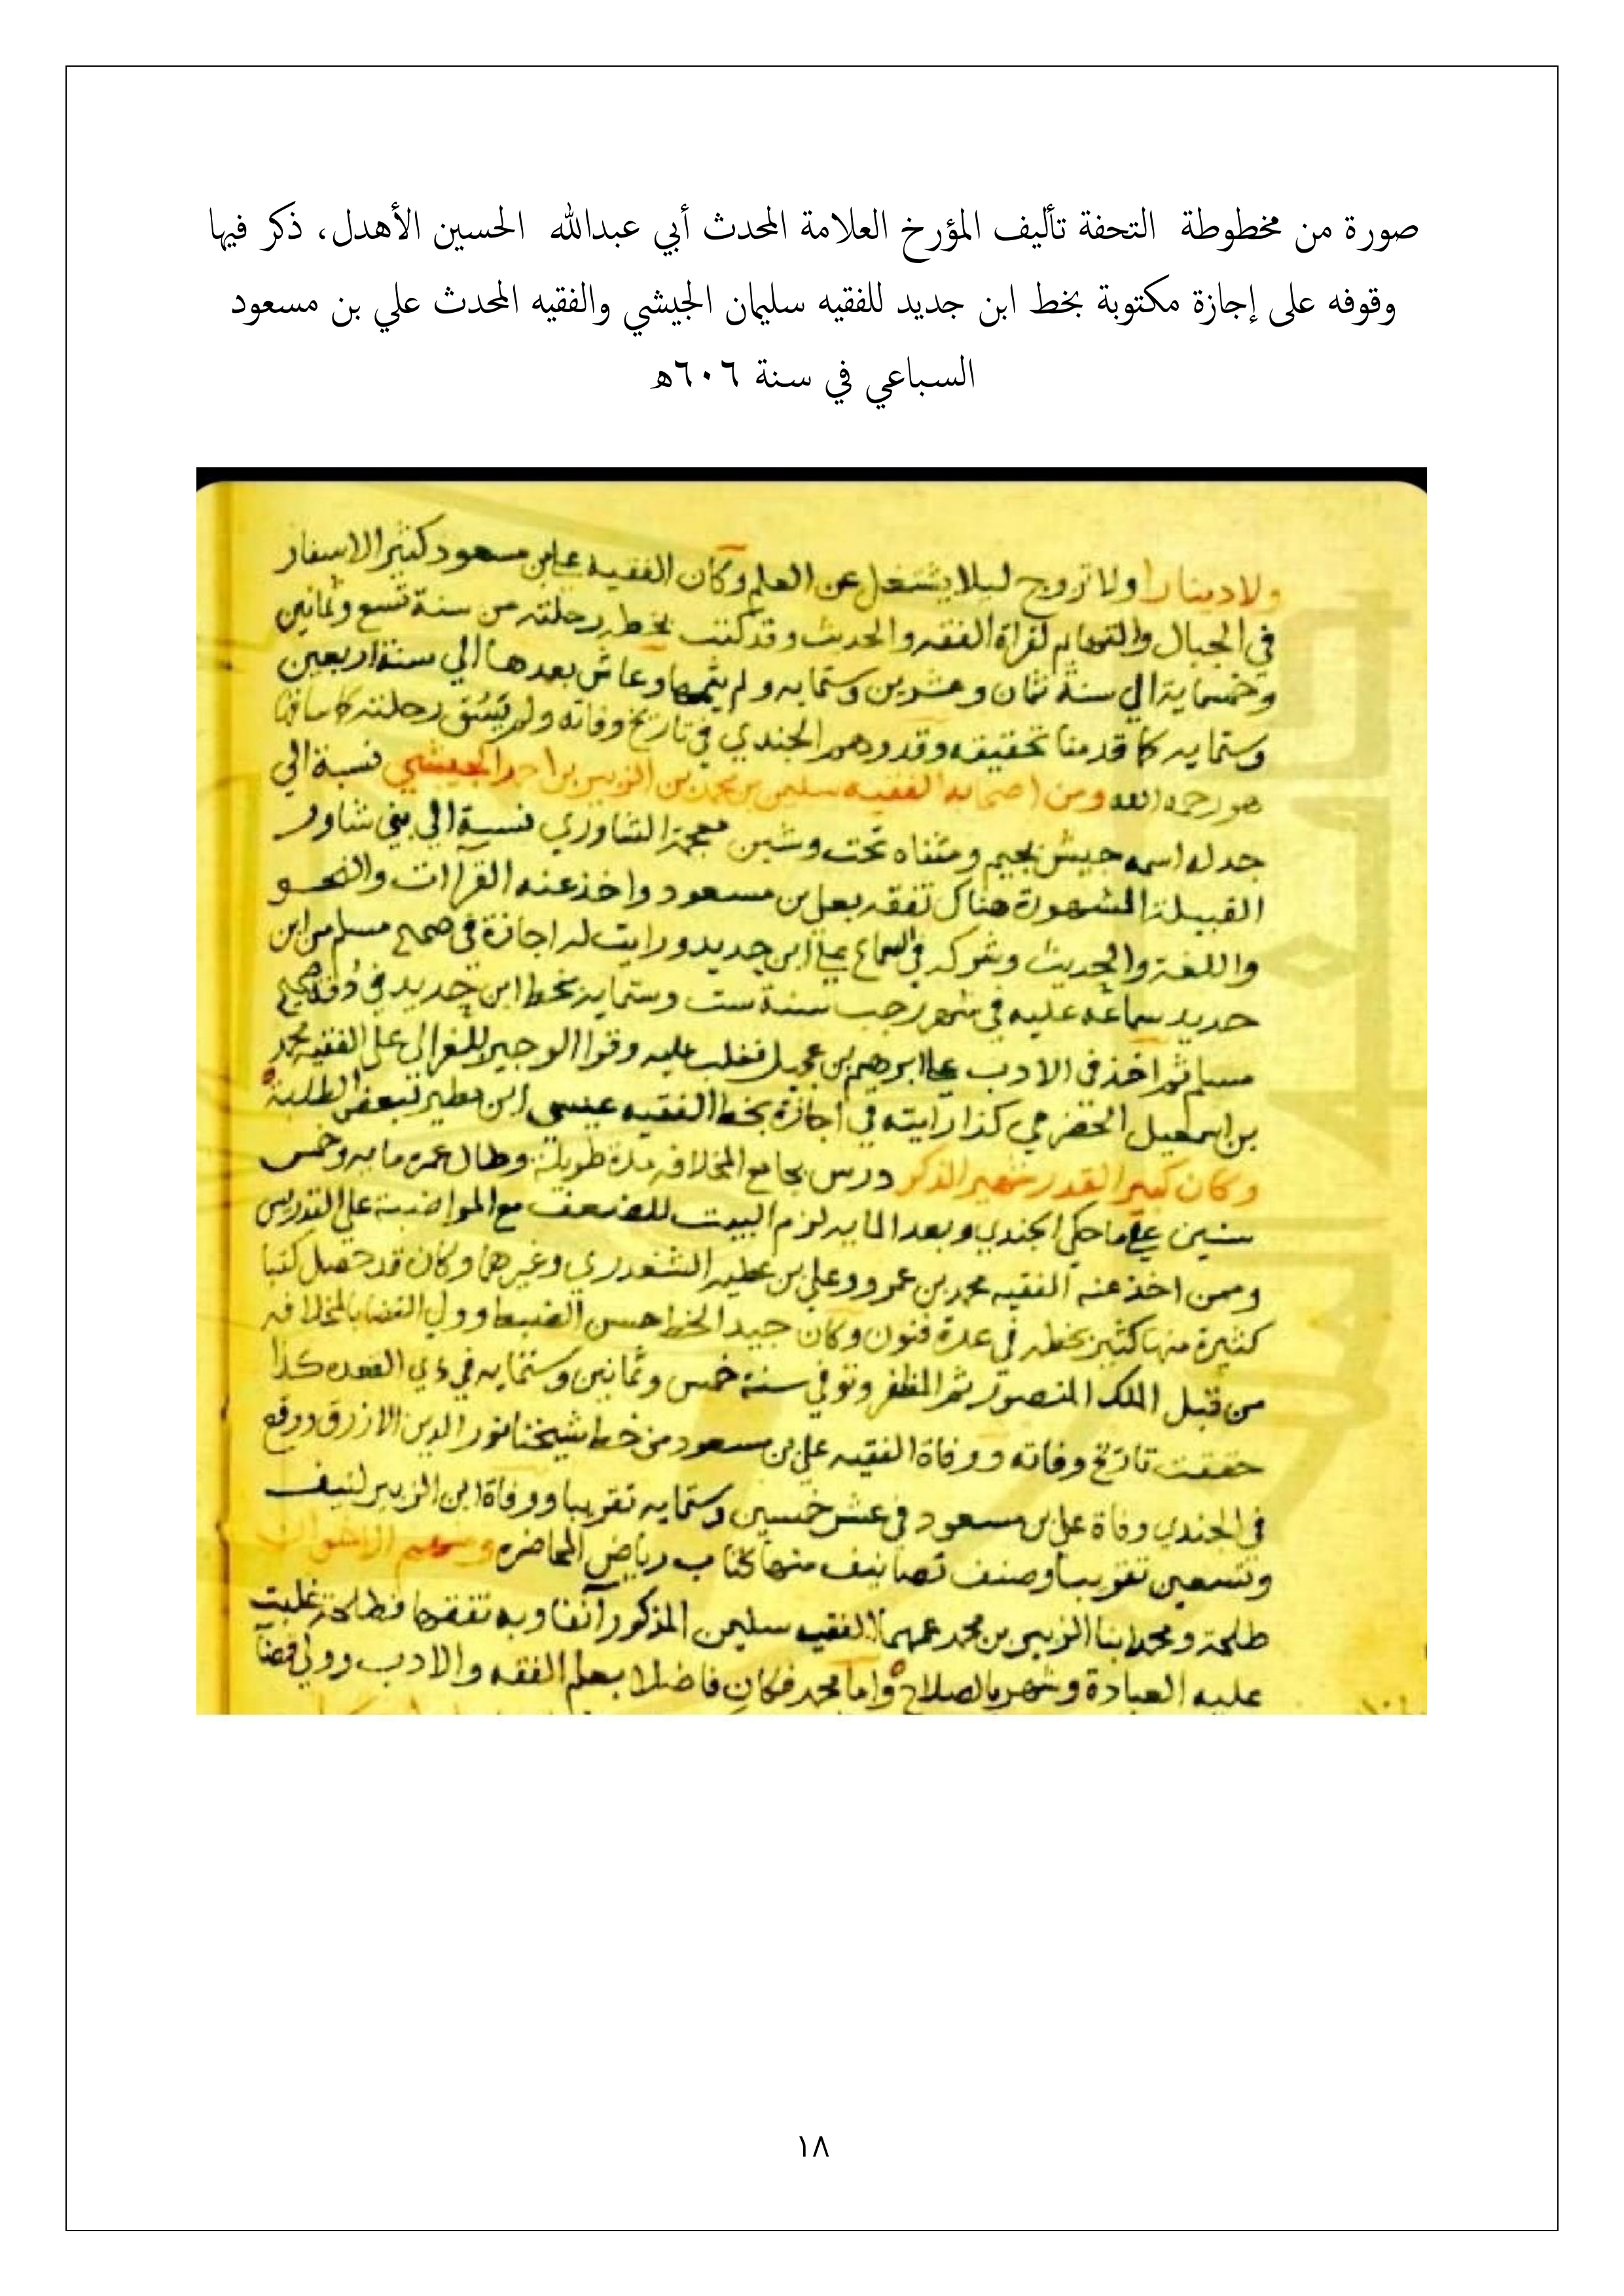 صورة من مخطوطة التحفة تأليف المؤرخ العلامة المحدث أبي عبدالله الحسين الأهدل، ذكر فيها
وقوفه على إجازة مكتوبة بخط ابن جديد للفقيه سليمان الجيشي والفقيه المحدث علي بن مسعود
السباعي في سنة ٦٠٦ه
ولا دينارا ولا تزوج ليلا يشتغل عن العلم وكان الفقيه علي بن مسعود كثير الاسفار
في الجبال والتهايم لقراة الفقه والحديث وقد كتب بخطه رحلته من سنة تسع وثمانين
وخمسماية الي سنة ثمان وعشرين وستمايه ولم يتمها وعاش بعدها الي سنة اربعين
وستمايه كما قدمنا تحقيقه وقد وهم الجندي في تاريخ وفاته ولم رحلته كما ساقها
هو رحمه الله ومن اصحابه الفقيه سليمن بن محمد بن الزبير بن احمد الجيشي نسبة الي
جد له اسمه جيش بجيم ومثناه تحت وشين معجمة الشاوري نسبة الي بني شاور
القبيلة المشهورة هناك تفقه بعلي بن مسعود واخذ عنه القراات والنحو
واللغة والحديث وشركه في السماع علي ابن جديد ورايت له اجازة في صحيح مسلم من ابن
جديد سماعه عليه في شهر رجب سنة ست وستمايه بخط ابن جديد في
مسلم ثم اخذ في الادب علي ابرهيم بن عجيل فغلب عليه وقرا الوجيز للغزالي على الفقيه محمد
بن اسمعيل الحضرمي كذا رايته في اجازة بخط الفقيه عيسى ابن مطير لبعض الطلبة
وكان كبير القدر شهير الذكر درس بجامع المخلافه مدة طويلة وطال عمره مايه وخمس
سنين علي ما حكي الجندي وبعد المايه لزم البيت للضعف مع المواضبة علي التدريس
وممن اخذ عنه الفقيه محمد بن عمرو وعلي بن عطيه الشغدري وغيرهما وكان قد حصل كتبا
كثيرة منها كثير بخطه في عدة فنون وكان جيد الخط حسن الضبط وولي القضا بالمخلافه
من قبل الملك المنصور ثم المظفر وتوفي سنة خمس وثمانين وستمايه في ذي القعده كذا
حققت تاريخ وفاته ووفاة الفقيه علي بن مسعود من خط شيخنا نور الدين الازرق ووقع
في الجندي وفاة علي بن مسعود في عشر خمسين وستمايه تقريبا ووفاة ابن الزبير لنيف
وتسعين تقريبا وصنف تصانيف منها كتاب رياض المحاضره ومنهم الاخوان
طلحة ومحمد ابنا الزبير بن محمد عمهما الفقيه سليمن المذكور آنفا وبه تفقها فطلحة غلبت
عليه العبادة وشهر بالصلاح واما محمد فكان فاضلا بعلم الفقه والادب وولي قضآ
١٨